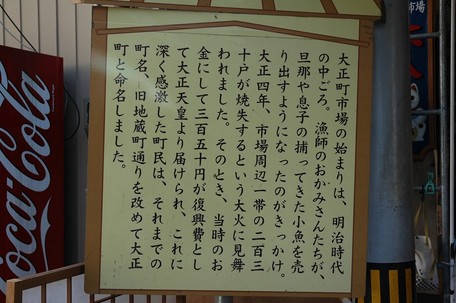 大正町市場の始まりは、明治時代
の中ごろ。漁師のおかみさんたちが、
旦那や息子の捕ってきた小魚を売
り出すようになったのがきっかけ。
大正四年、市場周辺一帯の二百三
十戸が焼失するという大火に見舞
われました。そのとき、当時のお
金にして三百五十円が復興費とし
て大正天皇より届けられ、これに
深く感激した町民は、それまでの
町名、旧地蔵町通りを改めて大正
町と命名しました。
Coca-Cola
市場